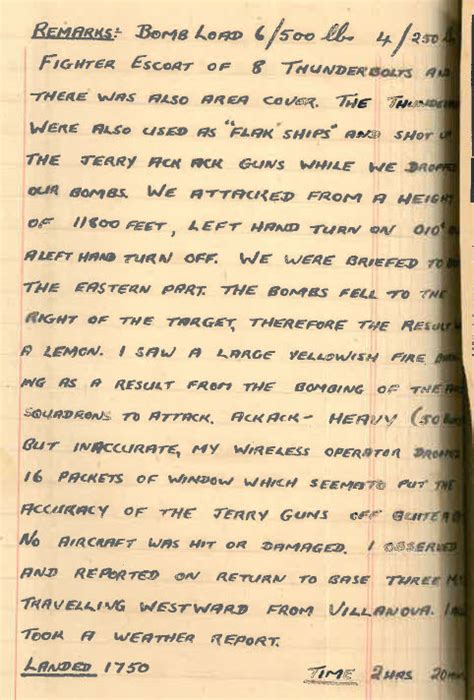 REMARKS:- BOMB LOAD 6/500 lbs 4/250 lb
FIGHTER ESCORT OF 8 THUNDERBOLTS AN
THERE WAS ALSO AREA COVER. THE
WERE ALSO USED AS "FLAK SHIPS" AND SHOT UP
THE JERRY ACK ACK GUNS WHILE WE DROPPED
OUR BOMBS. WE ATTACKED FROM A HEIGHT
OF 11800 FEET, LEFT HAND TURN ON 010°
A LEFT HAND TURN OFF. WE WERE BRIEFED TO
THE EASTERN PART. THE BOMBS FELL TO THE
RIGHT OF THE TARGET, THEREFORE THE RESULT
A LEMON. I SAW A LARGE YELLOWISH FIRE
ING AS A RESULT FROM THE BOMBING OF THE
SQUADRONS TO ATTACK. ACKACK - HEAVY (50
BUT INACCURATE, MY WIRELESS OPERATOR DROPPED
16 PACKETS OF WINDOW WHICH SEEM TO PUT THE
ACCURACY OF THE JERRY GUNS OFF QUITE A
NO AIRCRAFT WAS HIT OR DAMAGED. I OBSERVED
AND REPORTED ON RETURN TO BASE THREE M
TRAVELLING WESTWARD FROM VILLANOVA. I
TOOK A WEATHER REPORT.
LANDED 1750 TIME 2 HRS 20